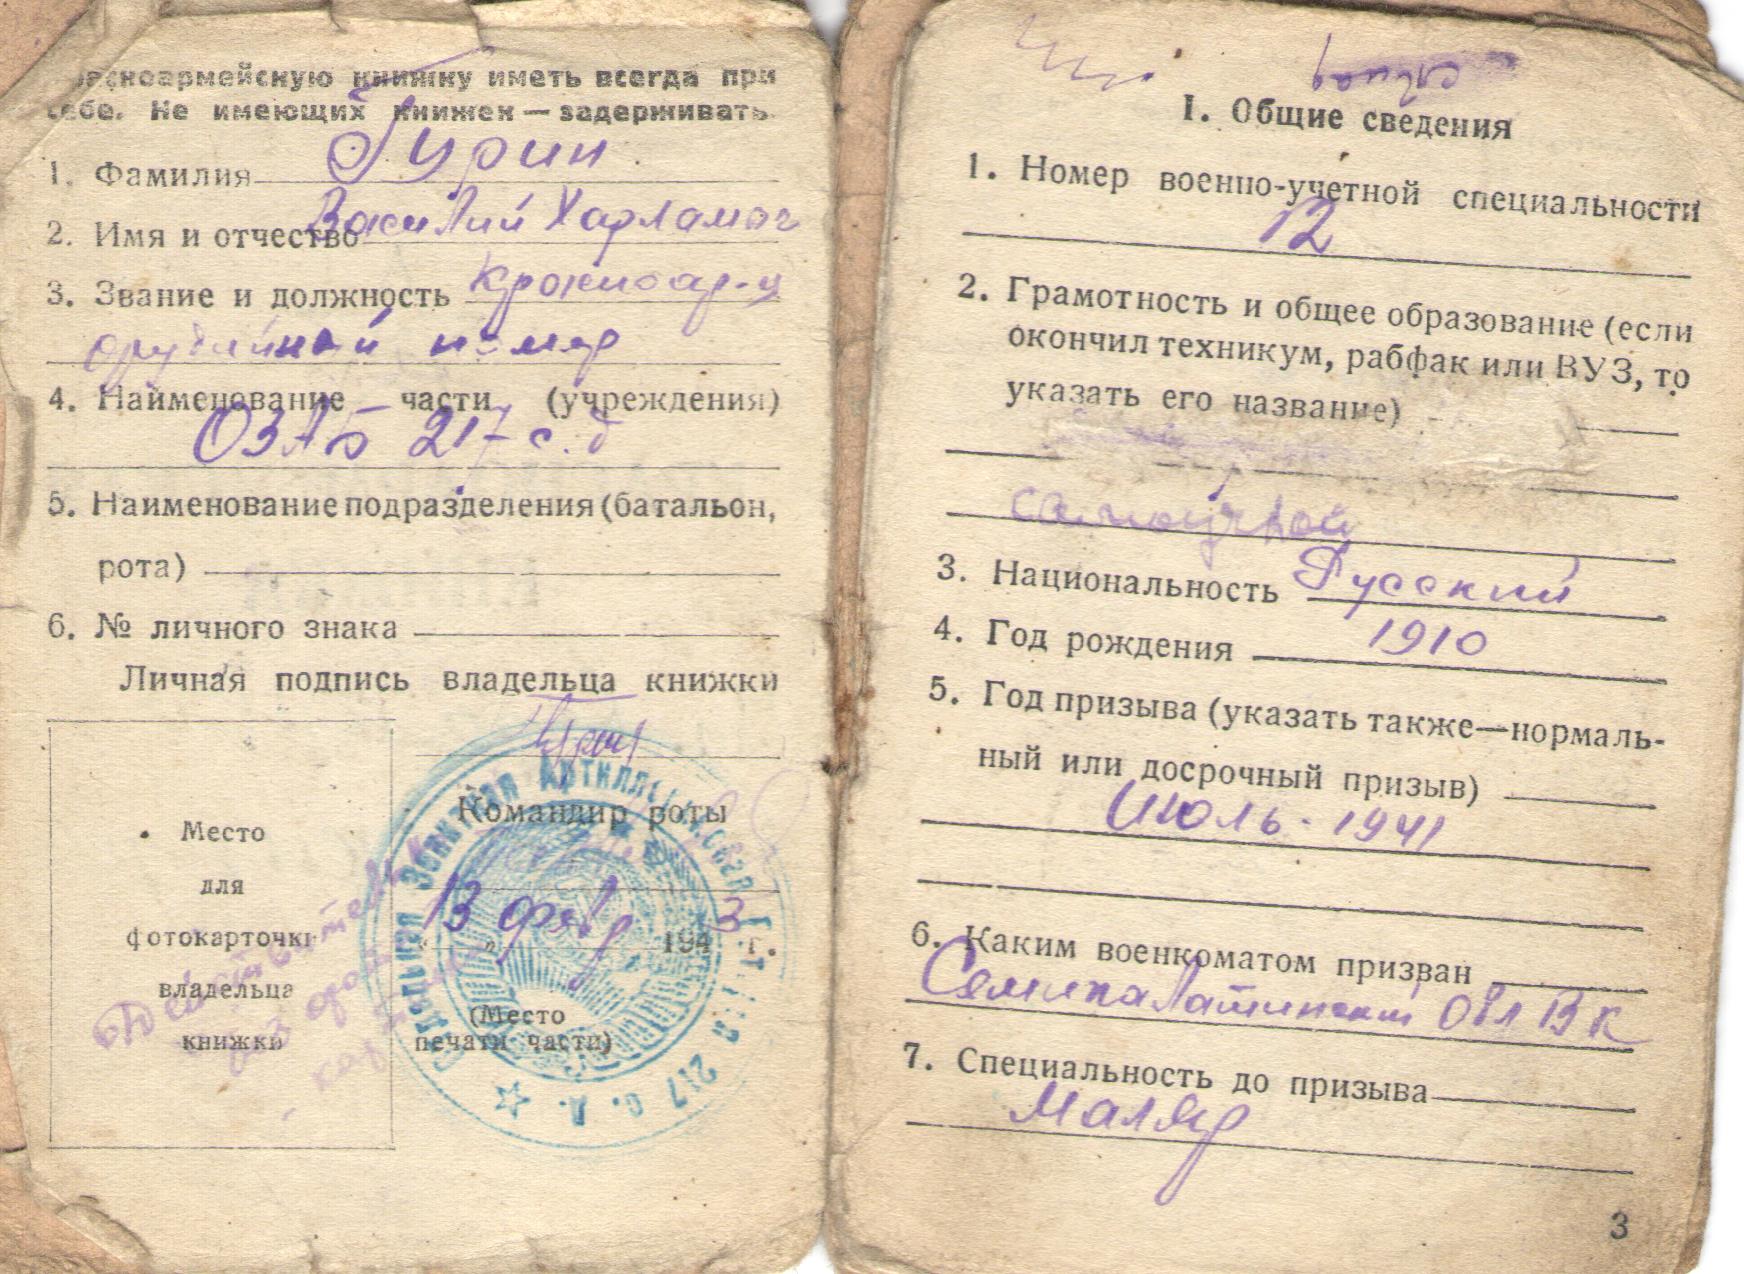 Красноармейскую книжку иметь всегда при
себе. Не имеющих книжек — задерживать.
1. Фамилия Гурин
2. Имя и отчество Василий Харламов
3. Звание и должность Красноар-ц
орудийный номер
4. Наименование части (учреждения)
ОЗАБ 217 с.д
5. Наименование подразделения (батальон,
рота)
6. № личного знака
Личная подпись владельца книжки
Командир роты
Место
для
фотокарточки
владельца
книжки
Действительна
без фото
карточки
13 февр 1943 г.
(Место
печати части)
Отдельная Зенитная Артиллерийская Батарея 217 С. Д.
I. Общие сведения
1. Номер военно-учетной специальности
12
2. Грамотность и общее образование (если
окончил техникум, рабфак или ВУЗ, то
указать его название)
самоучкой
3. Национальность Русский
4. Год рождения 1910
5. Год призыва (указать также—нормаль-
ный или досрочный призыв)
Июль - 1941
6. Каким военкоматом призван
Семипалатинский Обл ВК
7. Специальность до призыва
Маляр
3